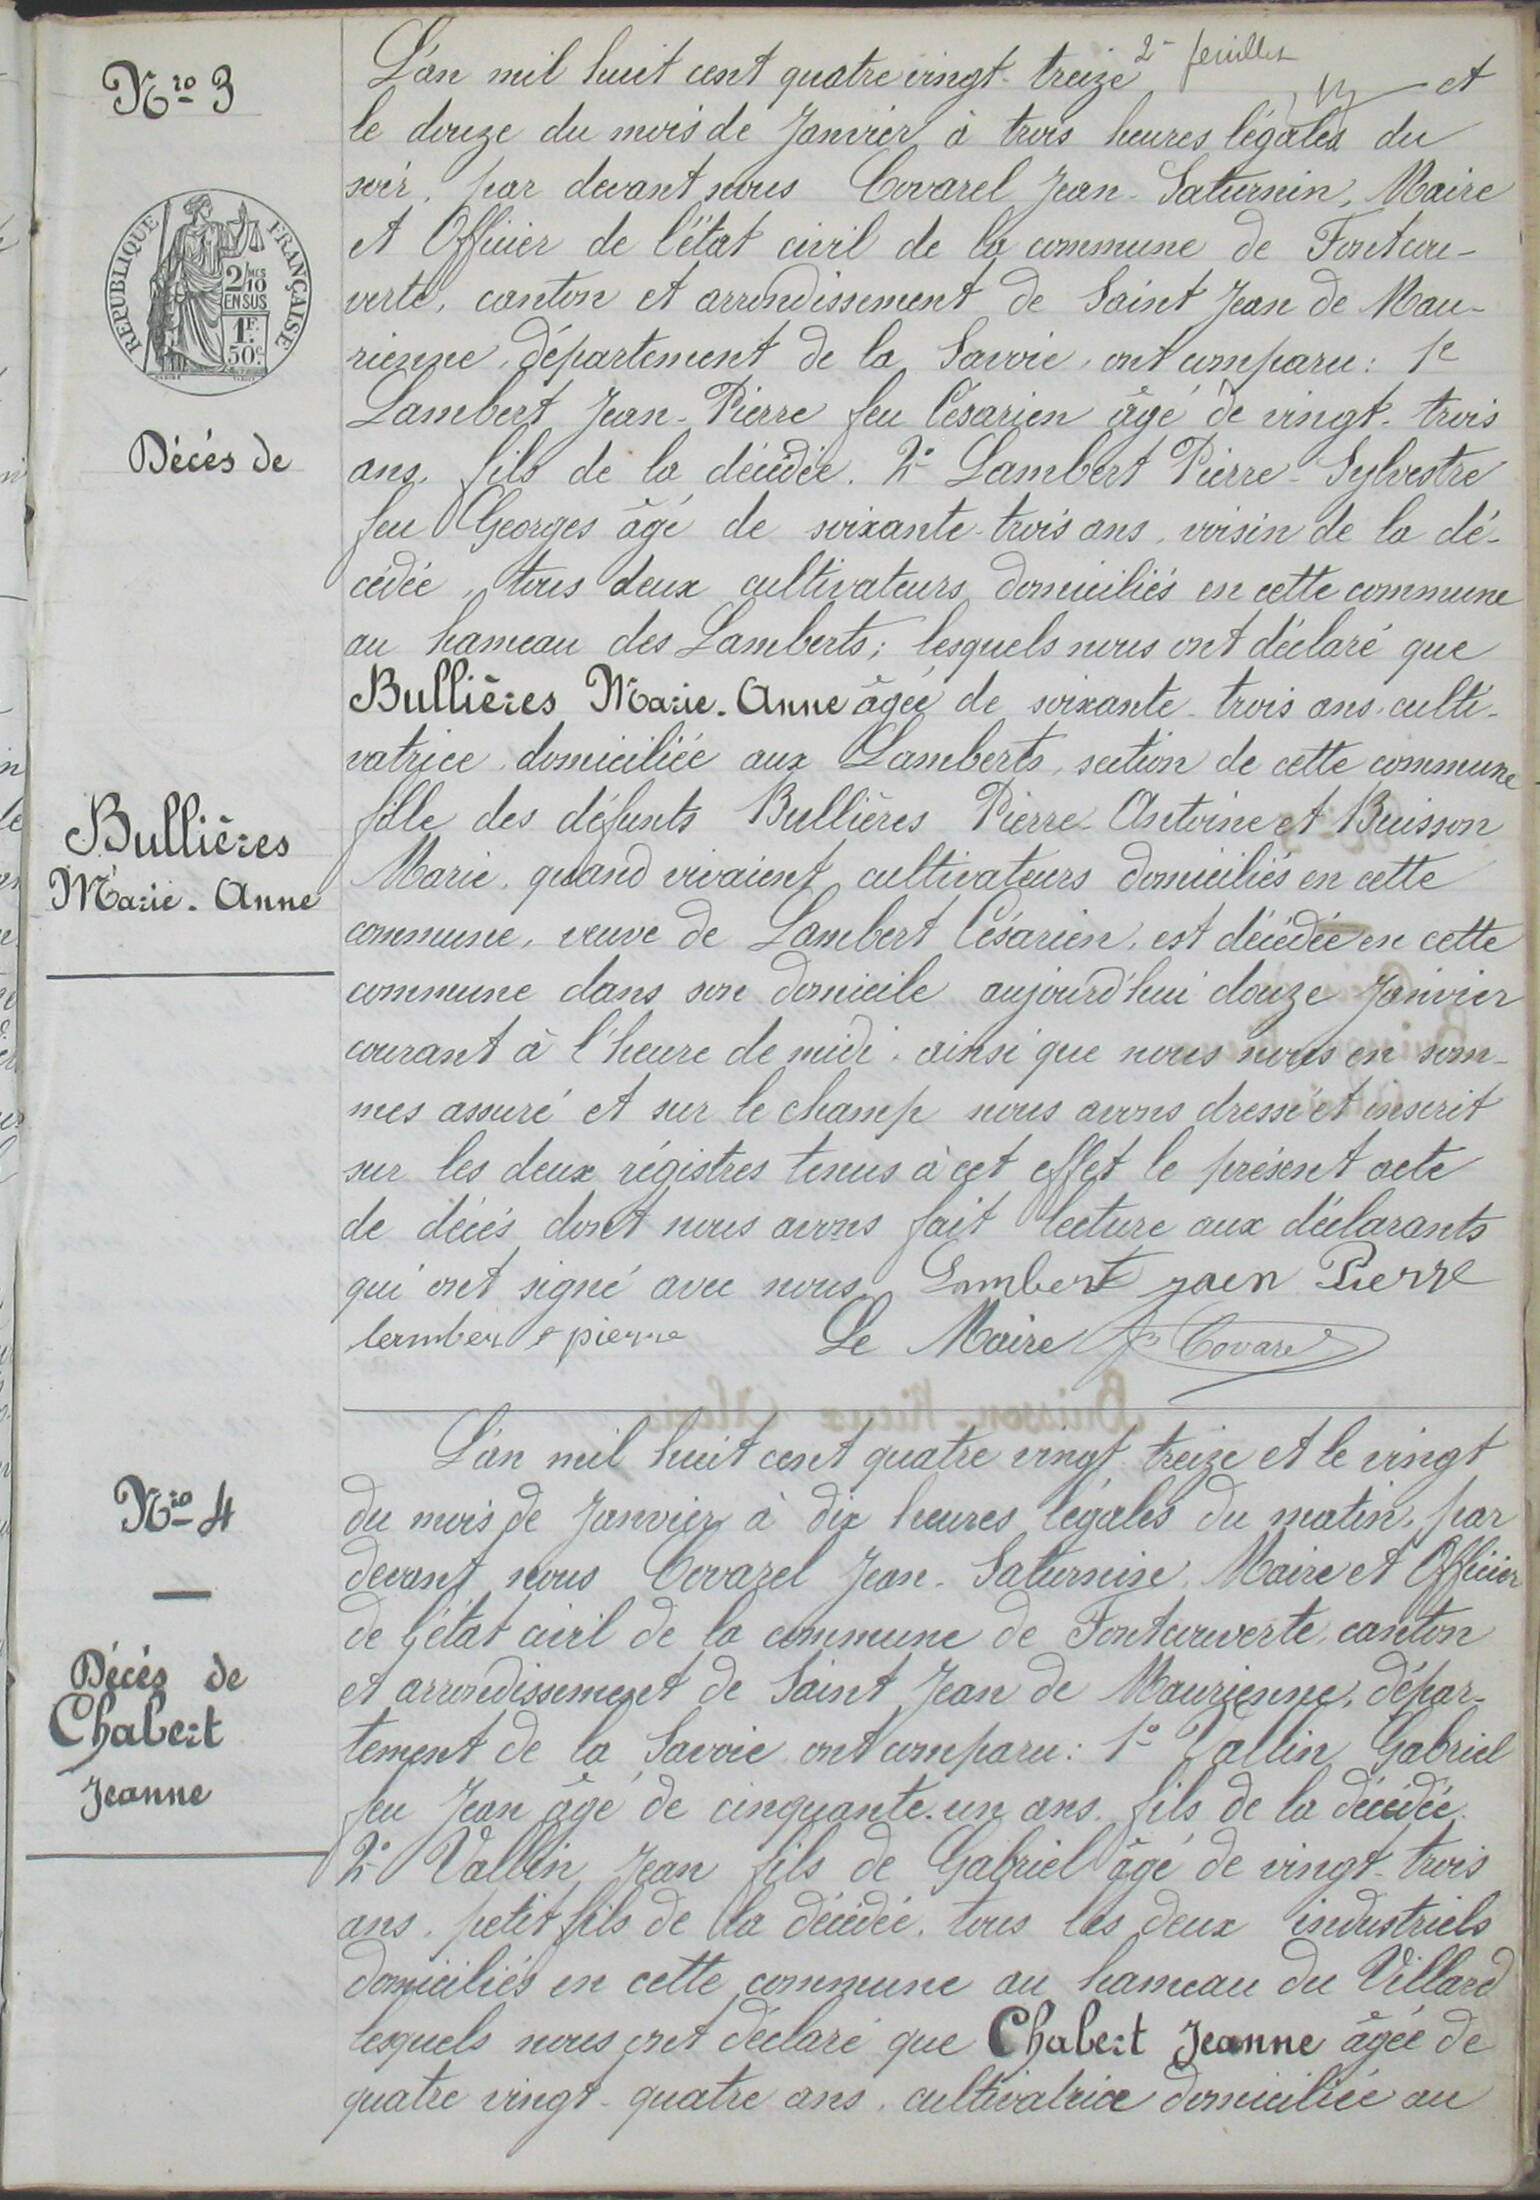 2e feuillet
Nro 3
REPUBLIQUE FRANÇAISE
2/10 MES
EN SUS
1F.
50c
Décés de
Bullières
Marie-Anne
L'an mil huit cent quatre vingt-treize et
le douze du mois de Janvier à trois heures légales du
soir, par devant nous Covarel Jean-Saturnin, Maire
et Officier de l'état civil de la commune de Fontcou-
verte, canton et arrondissement de Saint Jean de Mau-
rienne, département de la Savoie, ont comparu: 1e
Lambert Jean-Pierre feu Césarien âgé de vingt-trois
ans, fils de la décédée. 2° Lambert Pierre-Sylvestre
feu Georges âgé de soixante-trois ans, voisin de la dé-
cédée, tous deux cultivateurs domiciliés en cette commune
au hameau des Lamberts; lesquels nous ont déclaré que
Bullières Marie-Anne âgée de soixante-trois ans, culti-
vatrice, domiciliée aux Lamberts, section de cette commune
fille des défunts Bullières Pierre-Antoine et Buisson
Marie, quand vivaient cultivateurs domiciliés en cette
commune, veuve de Lambert Césarien, est décédée en cette
commune dans son domicile aujourd'hui douze Janvier
courant à l'heure de midi, ainsi que nous nous en som-
mes assuré et sur le champ nous avons dressé et inscrit
sur les deux régistres tenus à cet effet le présent acte
de décés dont nous avons fait lecture aux déclarants
qui ont signé avec nous. Lambert jaen Pierre
lambert pierre Le Maire Covarel
Nro 4
Décés de
Chabert
Jeanne
L'an mil huit cent quatre vingt-treize et le vingt
du mois de Janvier à dix heures légales du matin, par
devant nous Covarel Jean-Saturnin, Maire et Officier
de l'état civil de la commune de Fontcouverte, canton
et arrondissement de Saint Jean de Maurienne, dépar-
tement de la Savoie ont comparu: 1° Vallin Gabriel
feu Jean âgé de cinquante-un ans, fils de la décédée.
2° Vallin Jean fils de Gabriel âgé de vingt-trois
ans, petit fils de la décédée, tous les deux industriels
domiciliés en cette commune au hameau du Villard
lesquels nous ont déclaré que Chabert Jeanne âgée de
quatre vingt-quatre ans, cultivatrice domiciliée au